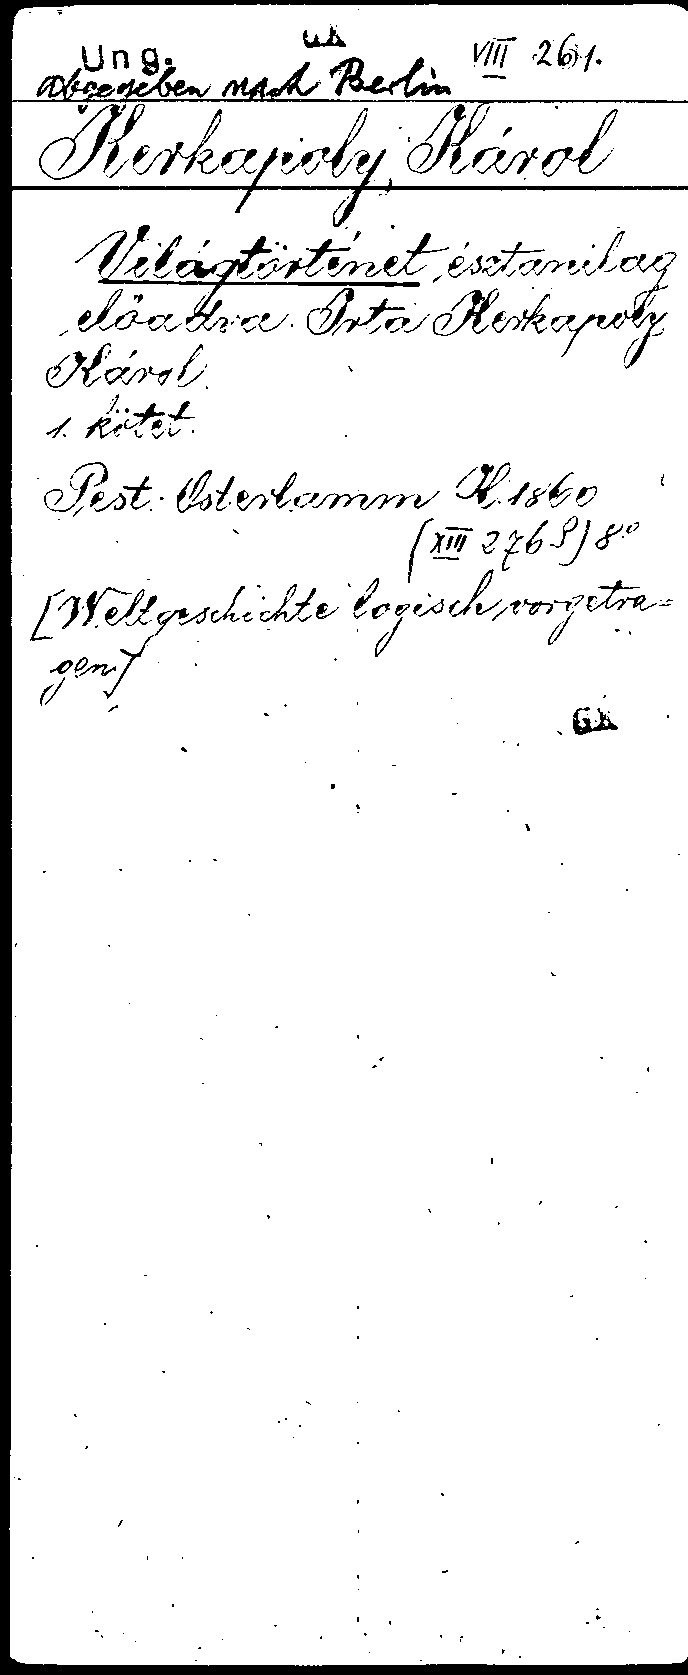 Ung. GK VIII 261.
abgegeben nach Berlin
Kerkapoly, Károl
Világtörténet észtanilag
előadva. Irta Kerkapoly
Károl.
1. kötet.
Pest. Osterlamm K. 1860
(XIII 276 S) 8°
[Weltgeschichte logisch vorgetra=
gen.]
GK